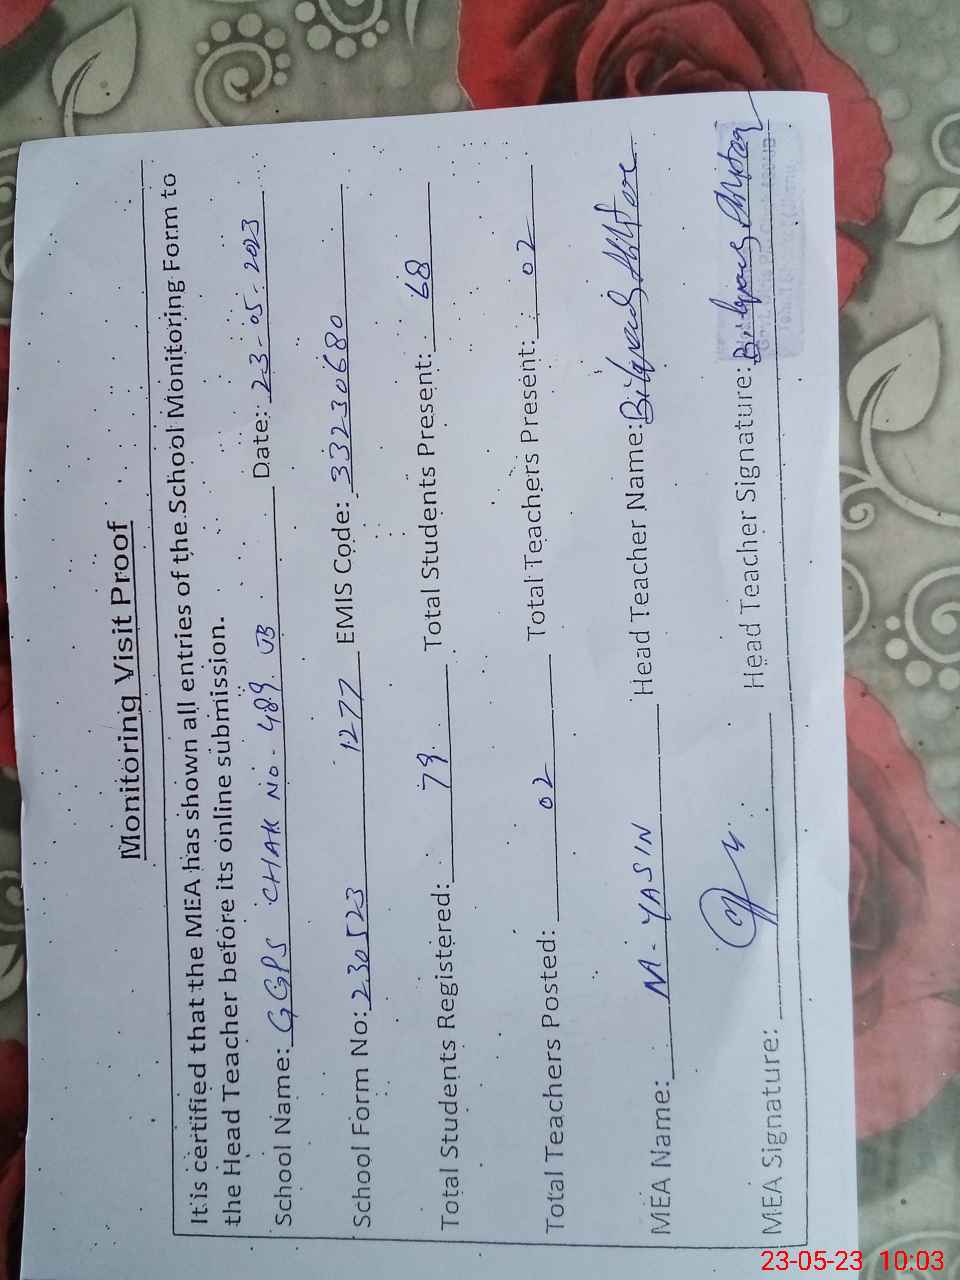 Monitoring Visit Proof
It is certified that the MEA has shown all entries of the School Monitoring Form to
the Head Teacher before its online submission.
School Name: GGPS CHAK NO. 489 JB Date: 23-05-2023
School Form No: 230523 1277 EMIS Code: 33230680
Total Students Registered: 79 Total Students Present: 68
Total Teachers Posted: 02 Total Teachers Present: 02
MEA Name: M. YASIN Head Teacher Name:
MEA Signature: Head Teacher Signature:
23-05-23 10:03